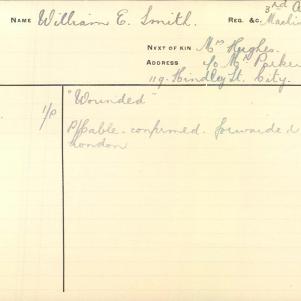 3rd A
NAME William E. Smith. REG. &C. Machi
NEXT OF KIN Mrs Hughes.
ADDRESS c/o Mr Parker
119. Hindley St. City.
"Wounded"
1/P
P/Cable. confirmed. forwarded
London